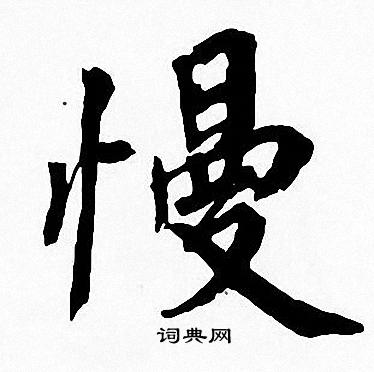 慢
词典网